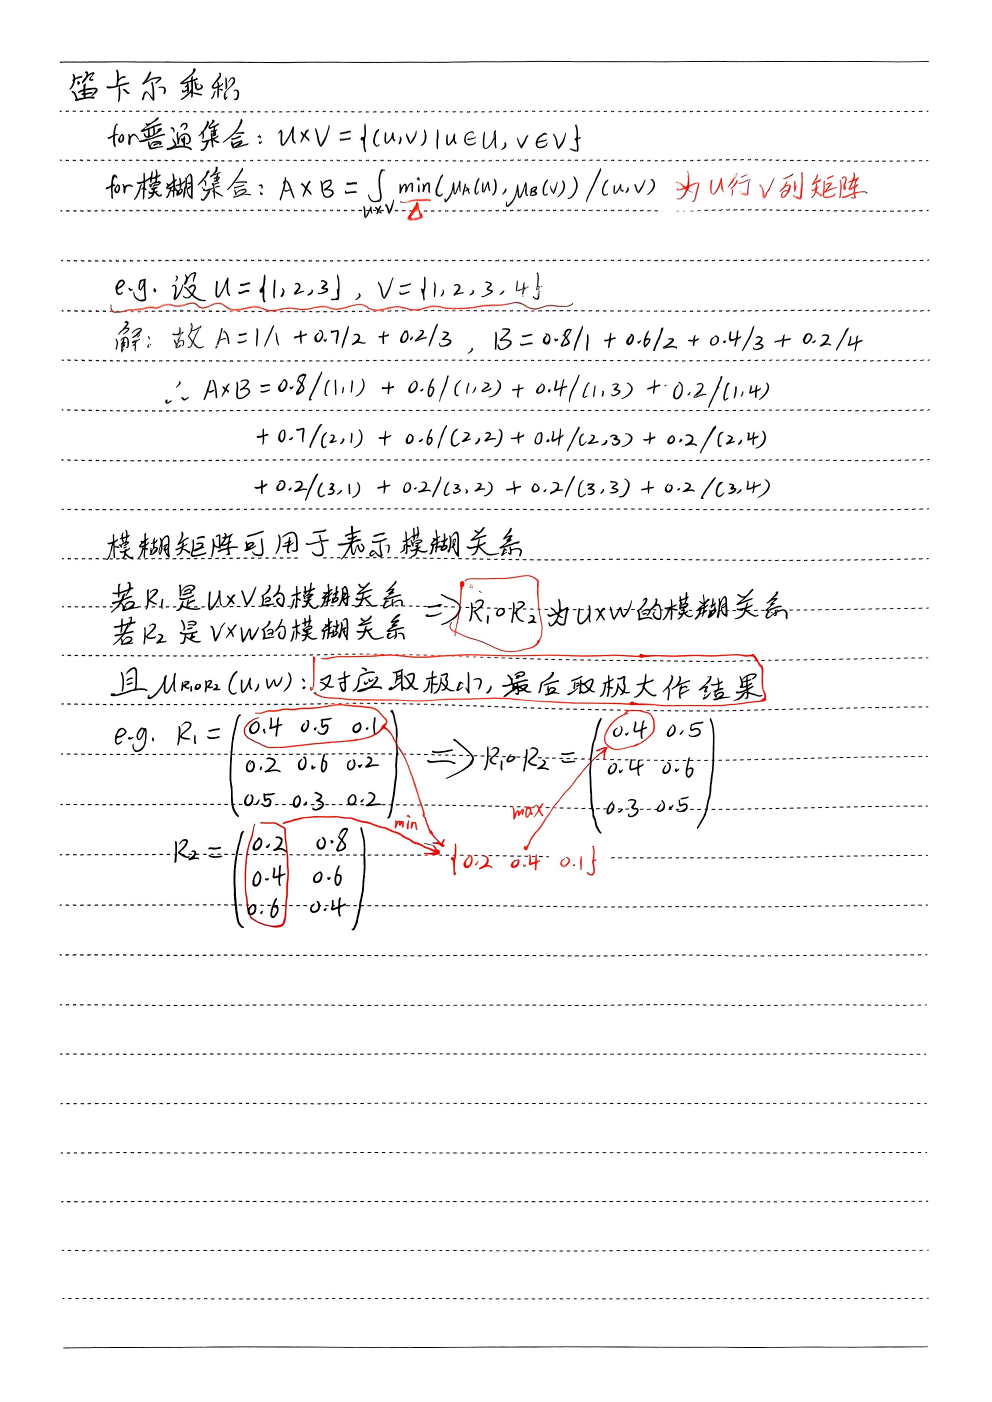 笛卡尔乘积
for普通集合: U×V={(u,v)|u∈U, v∈V}
for模糊集合: A×B=∫U×V min(μA(u), μB(v))/(u,v) 为U行V列矩阵
e.g. 设U={1,2,3}, V={1,2,3,4}
解: 故A=1/1+0.7/2+0.2/3, B=0.8/1+0.6/2+0.4/3+0.2/4
∴ A×B=0.8/(1,1)+0.6/(1,2)+0.4/(1,3)+0.2/(1,4)
+0.7/(2,1)+0.6/(2,2)+0.4/(2,3)+0.2/(2,4)
+0.2/(3,1)+0.2/(3,2)+0.2/(3,3)+0.2/(3,4)
模糊矩阵可用于表示模糊关系
若R1是U×V的模糊关系
若R2是V×W的模糊关系
⇒ R1∘R2 为U×W的模糊关系
且μR1∘R2(u,w): 对应取极小, 最后取极大作结果
e.g. R1=
0.4 0.5 0.1
0.2 0.6 0.2
0.5 0.3 0.2
⇒ R1∘R2=
0.4 0.5
0.4 0.6
0.3 0.5
min
max
R2=
0.2 0.8
0.4 0.6
0.6 0.4
{0.2 0.4 0.1}